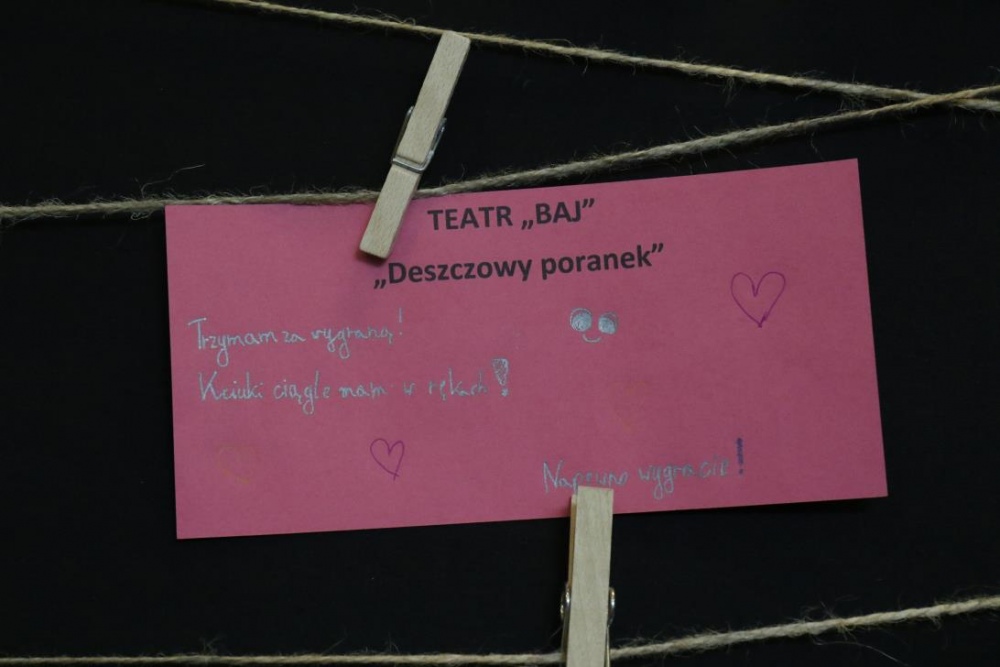 TEATR „BAJ”
„Deszczowy poranek”
Trzymam za wygraną!
Kciuki ciągle mam w rękach!
Napewno wygracie!